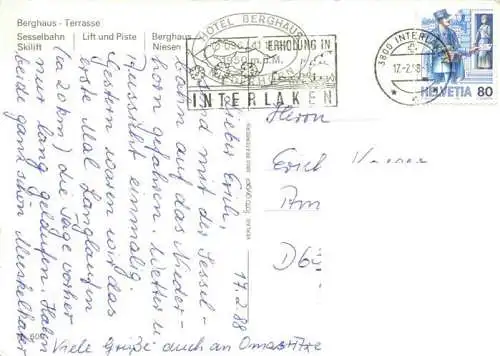 Berghaus - Terrasse
Sesselbahn
Skilift
Lift und Piste
Berghaus
Niesen
HOTEL BERGHAUS
ERHOLUNG IN
INTERLAKEN
3800 INTERLAKEN
17.-2.
HELVETIA 80
17.2.88
Lieber Erich,
sind mit der Sessel-
bahn auf das Nieder-
horn gefahren. Wetter u
Aussicht einmalig.
Gestern waren wir das
erste Mal Langlaufen
(ca 20 km) die Tage vorher
nur lang gelaufen. Haben
beide ganz schön Muskelkater
Viele Grüße auch an Oma
Herrn
Erich
Am
D63
VERLAG FOTO